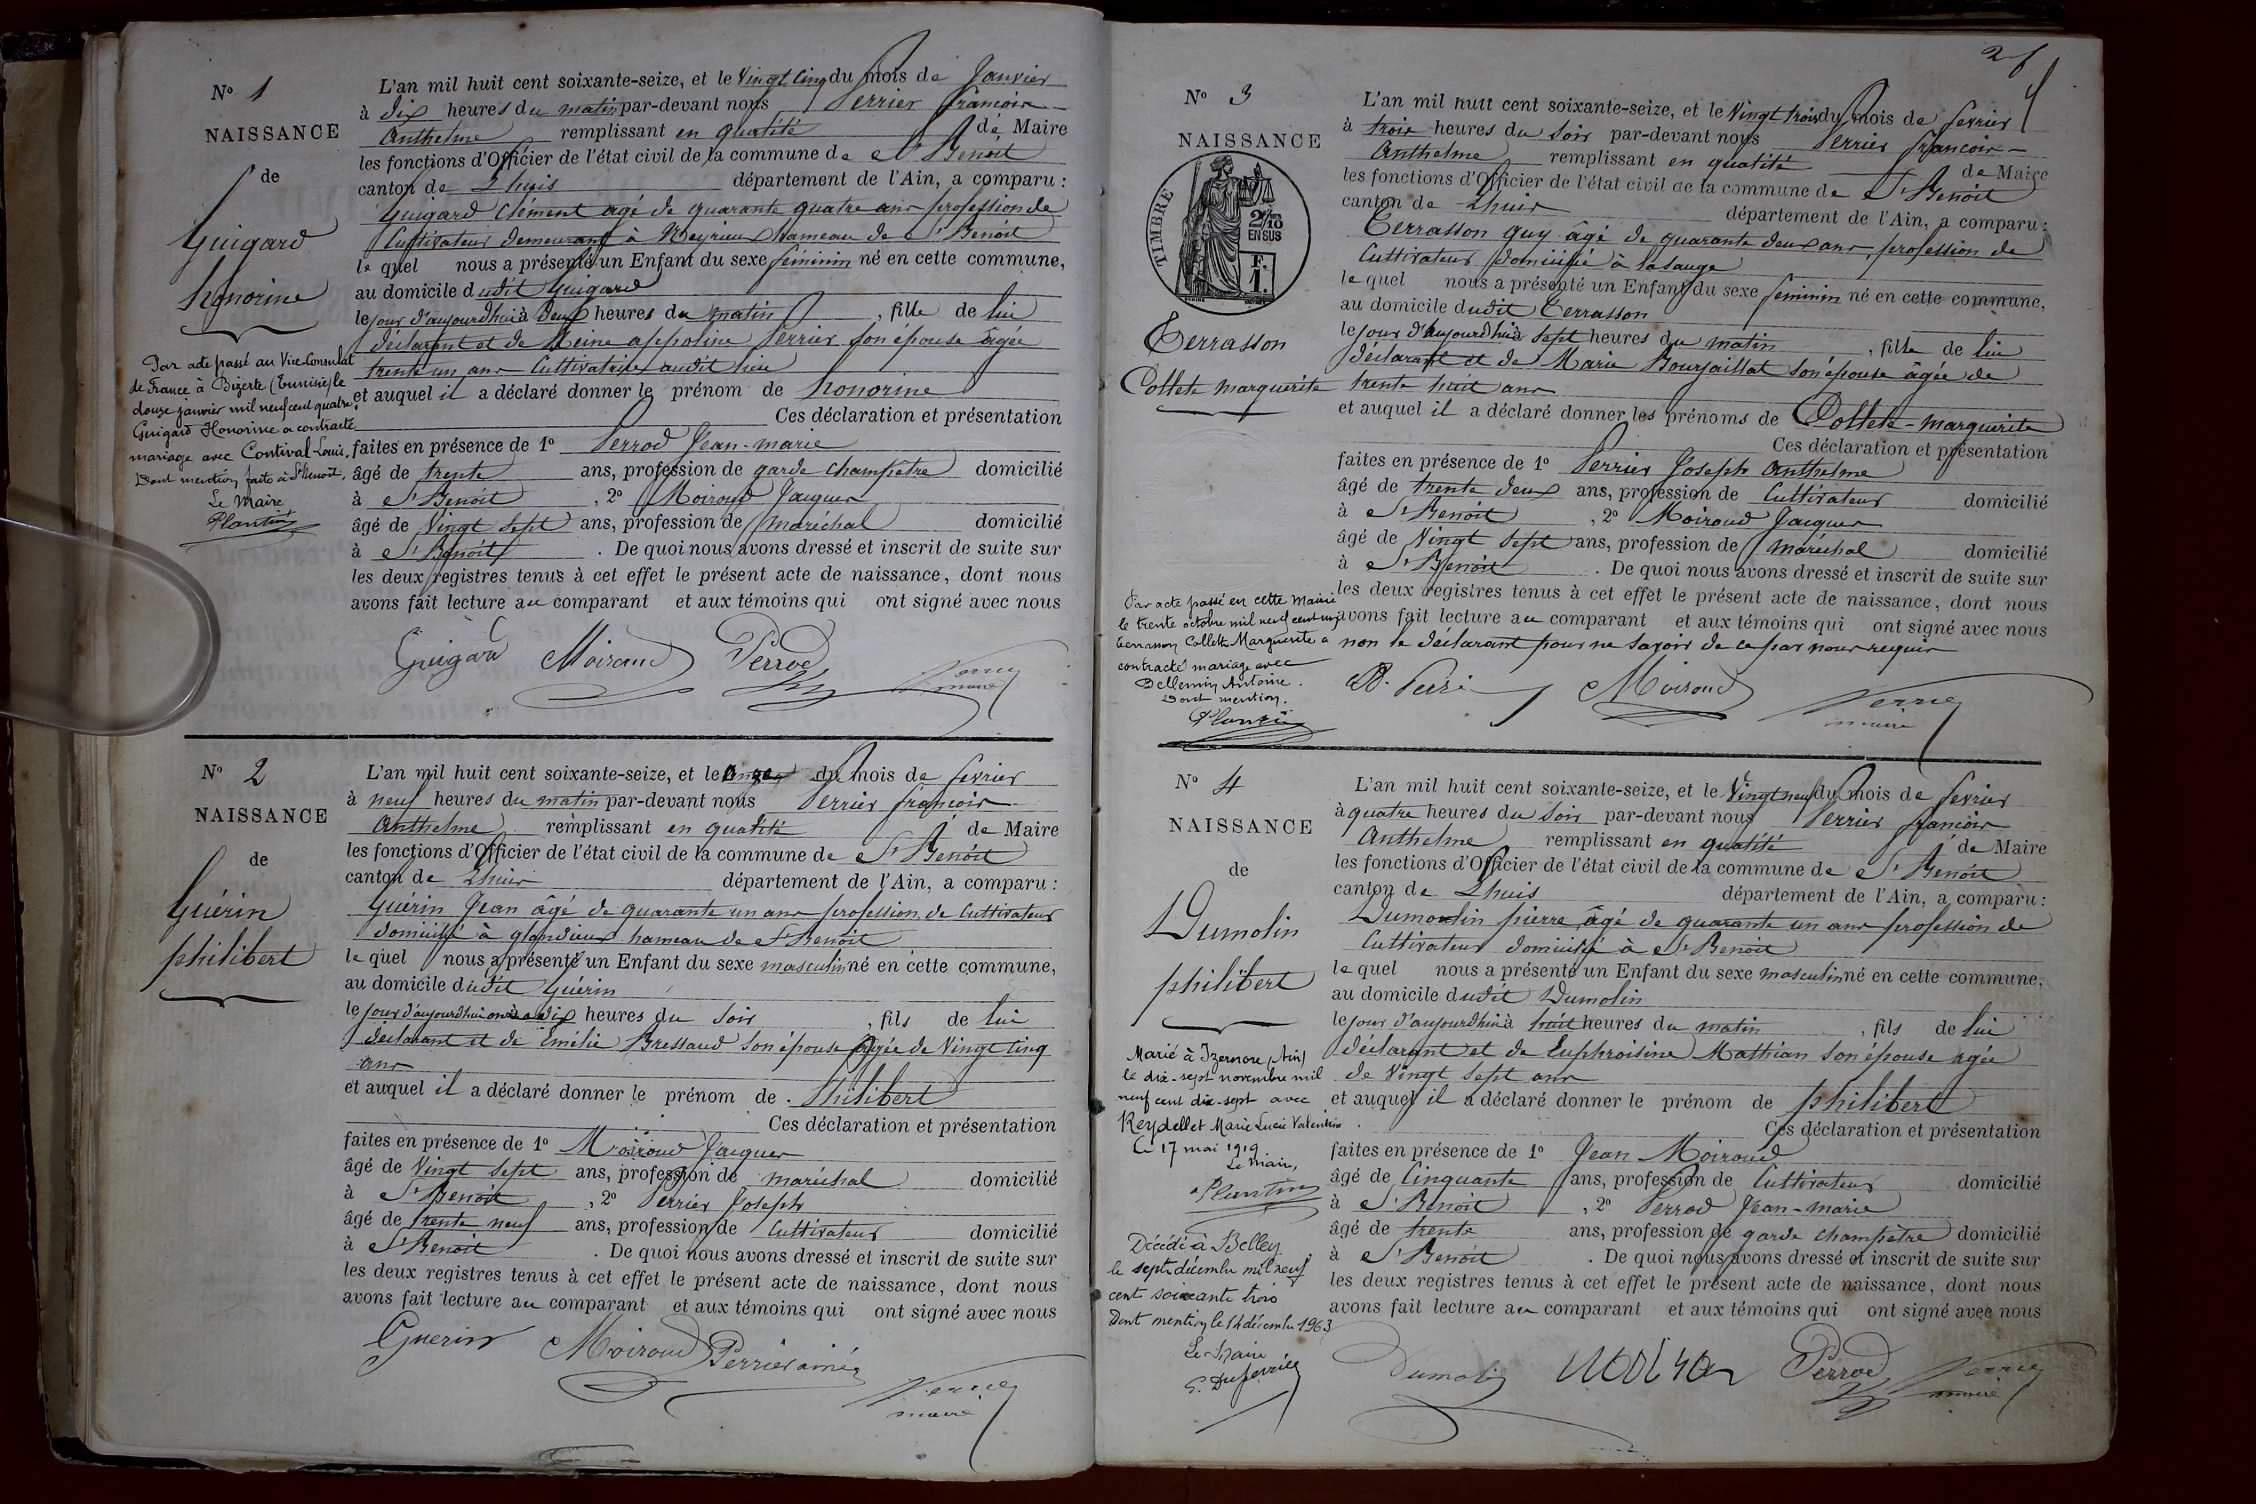 N° 1
NAISSANCE
de
Guigard
honorine
Par acte passé au Vice-Consulat
de France à Bizerte (Tunisie) le
douze janvier mil neuf cent quatre,
Guigard Honorine a contracté
mariage avec Contival Louis.
Dont mention faite à St Benoit.
Le Maire
Plantin
L'an mil huit cent soixante-seize, et le Vingt Cinq du mois de Janvier
à dix heures du matin par-devant nous Perrier françois
Anthelme remplissant en qualité de Maire
les fonctions d'Officier de l'état civil de la commune de St Benoit
canton de Lhuis département de l'Ain, a comparu :
Guigard Clément agé de quarante quatre ans profession de
Cultivateur demeurant à Rheyrieux hameau de St Benoit
le quel nous a présenté un Enfant du sexe féminin né en cette commune,
au domicile dudit Guigard
le jour d'aujourdhui à deux heures du matin , fille de lui
déclarant et de Reine appoline Perrier son épouse âgée
trente un ans Cultivatrice audit lieu
et auquel il a déclaré donner le prénom de honorine
Ces déclaration et présentation
faites en présence de 1° Perrod Jean-marie
âgé de trente ans, profession de garde champêtre domicilié
à St Benoit , 2° Moiroud Jacques
âgé de Vingt sept ans, profession de maréchal domicilié
à St Benoit . De quoi nous avons dressé et inscrit de suite sur
les deux registres tenus à cet effet le présent acte de naissance, dont nous
avons fait lecture au comparant et aux témoins qui ont signé avec nous
Guigard Moiroud Perrod Perrier
maire
N° 2
NAISSANCE
de
Guérin
philibert
L'an mil huit cent soixante-seize, et le onze du mois de fevrier
à neuf heures du matin par-devant nous Perrier françois
Anthelme remplissant en qualité de Maire
les fonctions d'Officier de l'état civil de la commune de St Benoit
canton de Lhuis département de l'Ain, a comparu :
Guérin Jean âgé de quarante un ans profession de Cultivateur
domicilié à glandieux hameau de St Benoit
le quel nous a présenté un Enfant du sexe masculin né en cette commune,
au domicile dudit Guérin
le jour d'aujourdhui à dix heures du soir , fils de lui
déclarant et de Emélie Bressaud son épouse agée de Vingt Cinq
ans
et auquel il a déclaré donner le prénom de Philibert
Ces déclaration et présentation
faites en présence de 1° Moiroud Jacques
âgé de Vingt sept ans, profession de maréchal domicilié
à St Benoit , 2° Perrier Joseph
âgé de trente neuf ans, profession de Cultivateur domicilié
à St Benoit . De quoi nous avons dressé et inscrit de suite sur
les deux registres tenus à cet effet le présent acte de naissance, dont nous
avons fait lecture au comparant et aux témoins qui ont signé avec nous
Guerin Moiroud Perrier ainé
Perrier
maire
N° 3
NAISSANCE
TIMBRE
2/10
EN SUS
F.
1.
Terrasson
Collete marguerite
Par acte passé en cette Mairie
le trente octobre mil neuf cent
Terrasson Collette Marguerite a
contracté mariage avec
Dellemin Antoine.
Dont mention.
Plantin
L'an mil huit cent soixante-seize, et le Vingt trois du mois de fevrier
à trois heures du soir par-devant nous Perrier françois
Anthelme remplissant en qualité de Maire
les fonctions d'Officier de l'état civil de la commune de St Benoit
canton de Lhuis département de l'Ain, a comparu :
Terrasson Guy âgé de quarante deux ans, profession de
Cultivateur domicilié à la Sauge
le quel nous a présenté un Enfant du sexe feminin né en cette commune,
au domicile dudit Terrasson
le jour d'aujourdhui à sept heures du matin , fille de lui
déclarant et de Marie Bourjaillat son épouse âgée de
trente huit ans
et auquel il a déclaré donner les prénoms de Collete-marguerite
Ces déclaration et présentation
faites en présence de 1° Perrier Joseph Anthelme
âgé de trente deux ans, profession de Cultivateur domicilié
à St Benoit , 2° Moiroud Jacques
âgé de Vingt sept ans, profession de maréchal domicilié
à St Benoit . De quoi nous avons dressé et inscrit de suite sur
les deux registres tenus à cet effet le présent acte de naissance, dont nous
avons fait lecture au comparant et aux témoins qui ont signé avec nous
non le déclarant pour ne savoir de ce par nous requis
Moiroud Perrier
maire
N° 4
NAISSANCE
de
Dumolin
philibert
Marié à Izernore (Ain)
le dix-sept novembre mil
neuf cent dix-sept avec
Reydellet Marie Lucie Valentine
Le 17 mai 1919
Le Maire,
Plantin
Décédé à Belley
le sept décembre mil neuf
cent soixante trois
Dont mention le 14 décembre 1963
Le Maire
L'an mil huit cent soixante-seize, et le Vingt neuf du mois de fevrier
à quatre heures du soir par-devant nous Perrier françois
Anthelme remplissant en qualité de Maire
les fonctions d'Officier de l'état civil de la commune de St Benoit
canton de Lhuis département de l'Ain, a comparu :
Dumoulin pierre âgé de quarante un ans profession de
Cultivateur domicilié à St Benoit
le quel nous a présenté un Enfant du sexe masculin né en cette commune,
au domicile dudit Dumolin
le jour d'aujourdhui à huit heures du matin , fils de lui
déclarant et de Euphroisine Mathian son épouse agée
de Vingt sept ans
et auquel il a déclaré donner le prénom de philibert
Ces déclaration et présentation
faites en présence de 1° Jean Moiroud
âgé de Cinquante ans, profession de Cultivateur domicilié
à St Benoit , 2° Perrod Jean-marie
âgé de trente ans, profession de garde champêtre domicilié
à St Benoit . De quoi nous avons dressé et inscrit de suite sur
les deux registres tenus à cet effet le présent acte de naissance, dont nous
avons fait lecture au comparant et aux témoins qui ont signé avec nous
Dumolin Perrod Perrier
maire